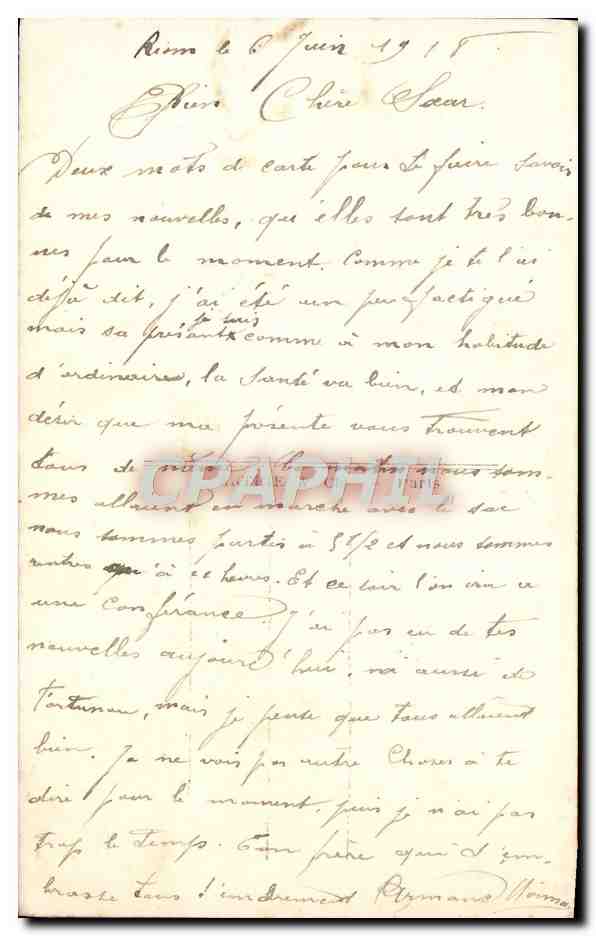 Riom le 6 Juin 1918.
Bien Chère Sœur.
Deux mots de carte pour te faire savoir
de mes nouvelles, qui élles sont très bon-
nes pour le moment. Comme je te l'ai
déjà dit, j'ai été un peu factigué
je suis
mais sa présant comme à mon habitude
d'ordinaire, la santé va bien, et mon
désir que ma présente vous trouvent
tous de même. Ce matin nous som-
CPAPHIL
Paris
mes allaient en marche avec le sac
nous sommes partis à 5 1/2 et nous sommes
rentres qu'à 11 heures. Et ce soir l'on ira a
une conférance. J'ai pas eu de tes
nouvelles aujourd'hui, ni aussi de
Fortuneau, mais je pense que tous allaient
bien. Je ne vois pas autre Choses à te
dire pour le moment, puis je n'ai pas
trop le temps. Ton frère qui t'em-
brasse tous t'endrement Armand